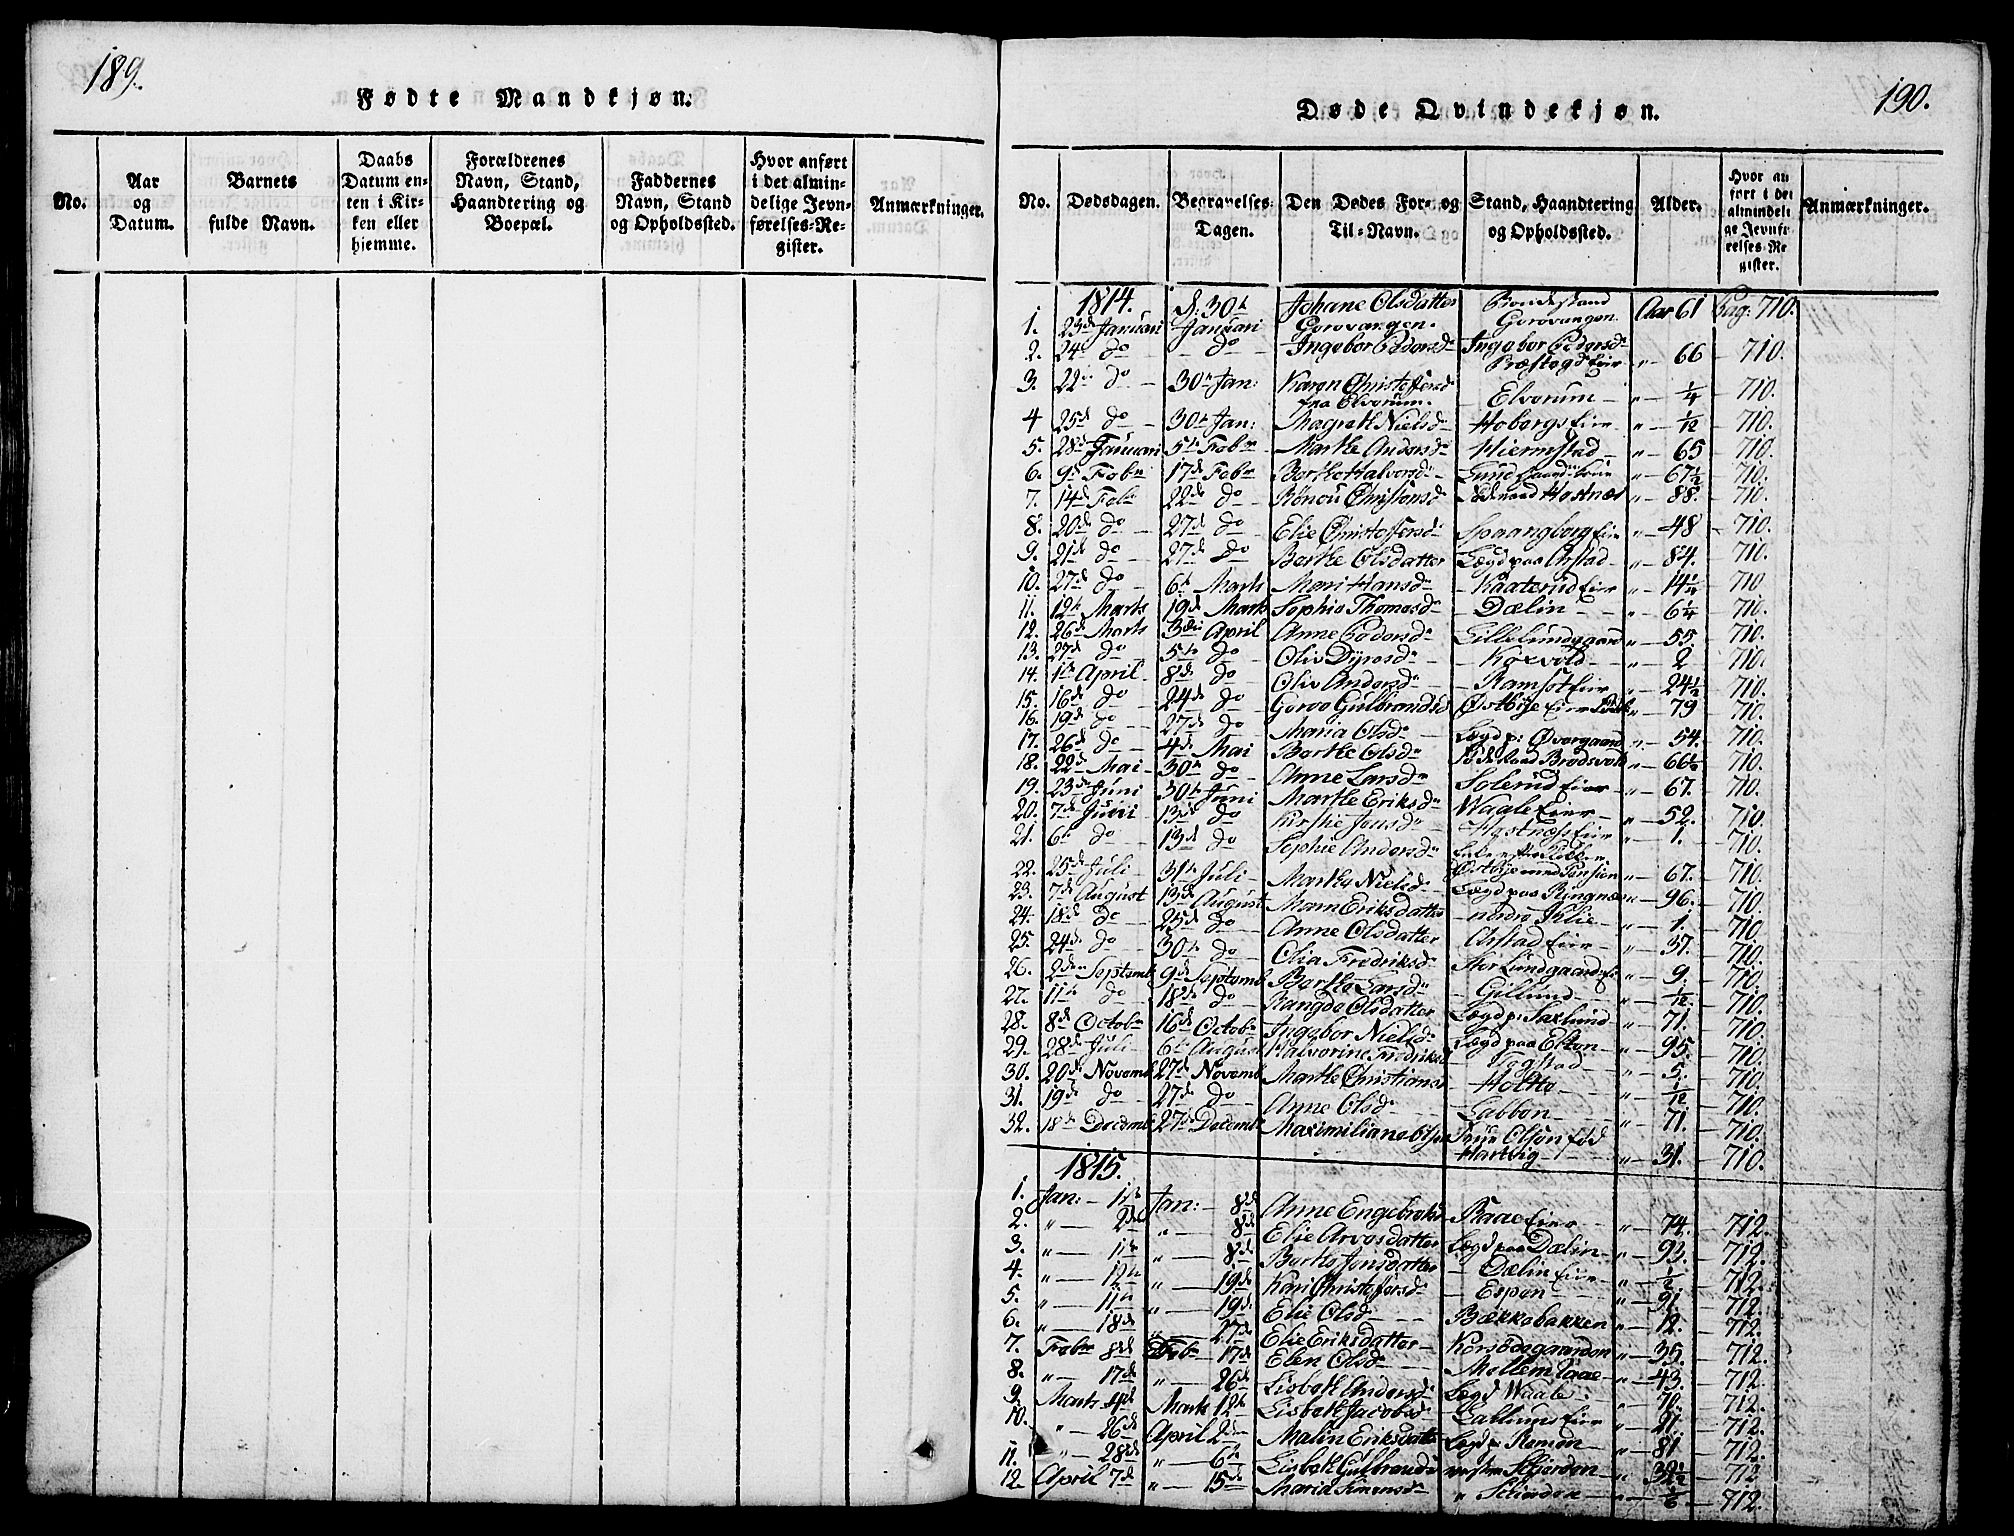 189.
Fødte Mandkjøn.
No.
Aar
og
Datum.
Barnets
fulde Navn.
Daabs
Datum en-
ten i Kir-
ken eller
hjemme.
Forældrenes
Navn, Stand,
Haandtering og
Boepæl.
Faddernes
Navn, Stand
og Opholdssted.
Hvor anført
i det almin-
delige Jevn-
førelses-Re-
gister.
Anmærkninger.
190.
Døde Qvindekjøn.
No.
Dødsdagen.
Begravelses-
Dagen.
Den Dødes For- og
Til-Navn.
Stand, Haandtering
og Opholdssted.
Alder.
Hvor an
ført i det
almindeli
ge Jevnfø
relses-Re
gister.
Anmærkninger.
1814.
1. 23de Januari d: 30te Januari Johane Olsdatter Gorovangen. Bondestand Gorovangen Aar 61 Pag: 710.
2. 24de do do Ingebor Pedersd. Ingebor Pedersd. Præstegds Eier " 66 710.
3. 22de do 30te Jan: Karen Christoffersd. fra Elverum. Elverum " 1/4 710.
4 25de do 30te Jan: Magrete Nielsd. Hobergs Eier " 1/12 710.
5. 28de Januari 5te Febr. Marthe Andersd. Hiermstad " 65 710.
6. 9de Febr. 17de Febr. Berthe Halvorsd. Lund " 67 1/2 710.
7. 14de Febr. 22de do Christensd. Hostnæs " 88. 710.
8. 20de do 27de do Elie Christoffersd. Spaangberg Eier " 48 710.
9. 21de do 27de do Berthe Olsdatter Lægd paa Arstad " 84. 710.
10. 27de do 6te Marts Mari Hansd. Kaaterud Eier " 14 1/4 710.
11. 12te Marts 19de Marts Sophie Thomasd. Dælin " 6 1/4 710.
12. 26de Marts 3die April Anne Pedersd. Lille Lundgaard " 55. 710.
13. 27de do 5te do Oliv Dyresd. Koxvold " 2 710.
14. 1te April 8de do Oliv Andersd. Ramset Eier " 24 1/2 710.
15. 16de do 24de do Goroe Gulbrandsd. Østbye Eier " 79 710.
16. 19de do 27de do Maria Olsd. Lægd p: Øvergaard " 54. 710.
17. 26de do 4de Mai Berthe Olsd. Brødsvold " 66 1/2 710.
18. 22de Mai 30te do Anne Larsd. Solerud Eier " 67. 710.
19. 23de Juni 30te Juni Marthe Eriksd. Waale Eier " 52. 710.
20. 7de Juni 13de do Kirstie Jensd. Hostnæs Eier " 1. 710.
21. 6te do 13de do Sophie Andersd.
22. 25de Juli 31te Juli Marthe Nielsd. Østbye med Pension " 67. 710.
23. 7de August 13de August Maren Eriksdatter Lægd paa Ringnæs " 96. 710.
24. 18de do 25de do Anne Olsdatter nedre Iklie " 1. 710.
25. 24de do 30te do Elia Fredriksd. Arstad Eier " 37. 710.
26. 2den Septemb. 9de Septemb. Berthe Larsd. Stor Lundgaards Eier " 9. 710.
27. 11te do 18de do Rangde Olsdatter Gillund " 1/12. 710.
28. 8de Octobr. 16de Octobr. Ingebor Nielsd. Lægd p: Saxlund " 71. 710.
29. 28de Juli 6te August Halvorine Fredriksd. Lægd paa Eften " 95. 710.
30. 20de Novemb. 27de Novemb. Marthe Christiansd. Fogstad " 5. 710.
31. 19de do 27de do Anne Olsd. Holtte " 1/12 710.
32. 18de Decemb. 27de Decemb. Maximiliane Olsen Labben " 71. 710.
Frue Olsen fød Hartvig " 31. 710.
1815.
1. Jan: 1te Jan: 8de Anne Engebretsd. Raae Eier " 74. 712.
2. " 2de " 8de Elie Arvesdatter Lægd paa Dælin " 93. 712.
3. " 11te " 8de Berthe Jensdatter Dælin Eier " 1/2 712.
4. " 12te " 19de Kari Christoffersd. Espen " 91. 712.
5. " 11te " 19de Elie Olsd. Bækkebakken " 12. 712.
6. " 18de " 27de Elie Eriksdatter Korsbøegaarden " 35. 712.
7. Febr. 8de Febr. 17de Elen Olsd. Mellem Raae " 43. 712.
8. " 17de " 26de Lisbeth Andersd. Lægd Waale " 70. 712.
9. Marts 4de Marts 12te Lisbeth Jacobsd. Lallums Eier " 21. 712.
10. " 26de April 2den Malin Eriksdatter Lægd p: Remen " 81. 712.
11. " 28de " 6te Lisbeth Gulbrandsd. vestre Skierden " 32 1/2 712
12. April 7de " 15de Maria Simensd. " Skierden " 1/6 712.